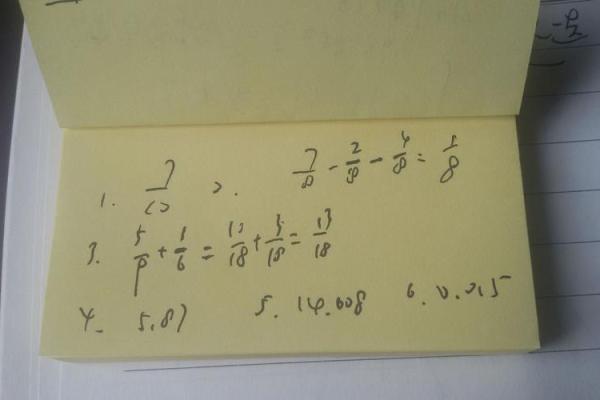 1. 7/10 2. 7/8 - 2/8 - 4/8 = 1/8
3. 5/9 + 1/6 = 10/18 + 3/18 = 13/18
4. 5.87 5. 14.008 6. 0.015